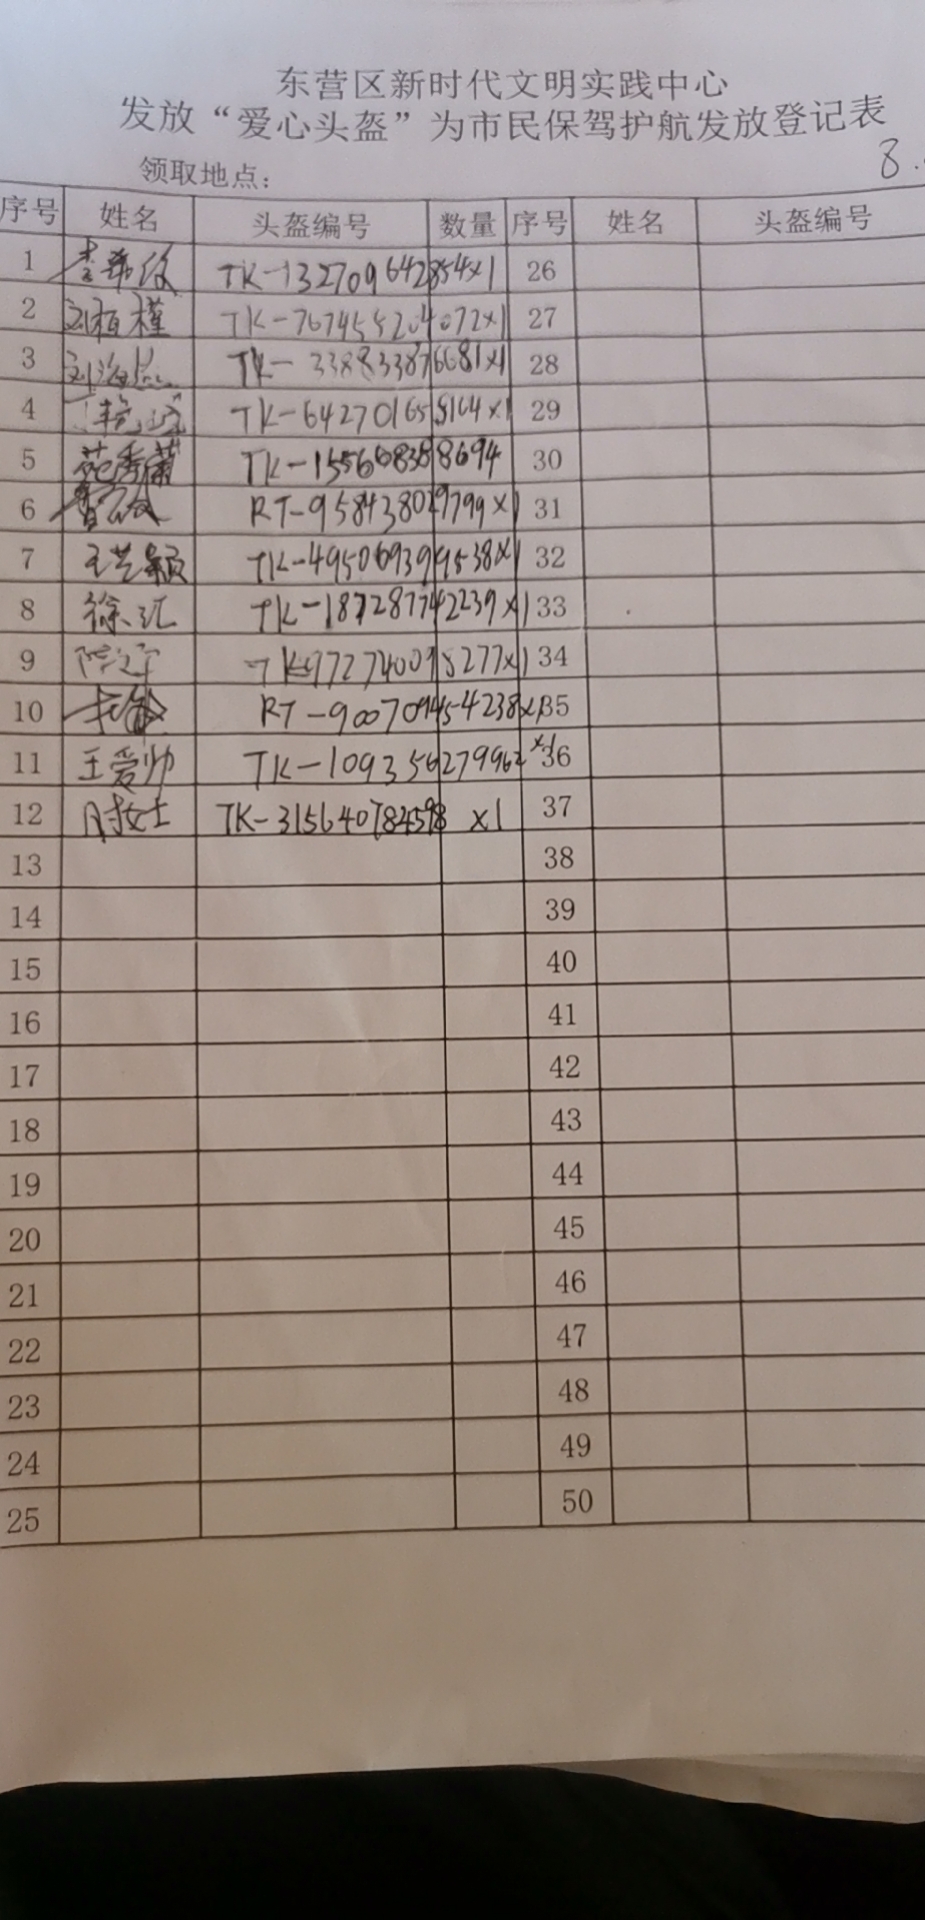 东营区新时代文明实践中心
发放“爱心头盔”为市民保驾护航发放登记表
领取地点： 8.
序号 姓名 头盔编号 数量 序号 姓名 头盔编号
1 李希俊 TK-132709642854x1 26
2 刘植槿 TK-767455204072x1 27
3 刘海 TK-338833876681x1 28
4 TK-642701658164x1 29
5 范秀荣 TK-155668388694 30
6 RT-958438029799x1 31
7 王艺颖 TK-495069399538x1 32
8 徐汇 TK-187287742239x1 33
9 TK6972740098277x1 34
10 RT-900709454238x1 35
11 王爱帅 TK-109356279962x1 36
12 时女士 TK-315640784598 x1 37
13 38
14 39
15 40
16 41
17 42
18 43
19 44
20 45
21 46
22 47
23 48
24 49
25 50